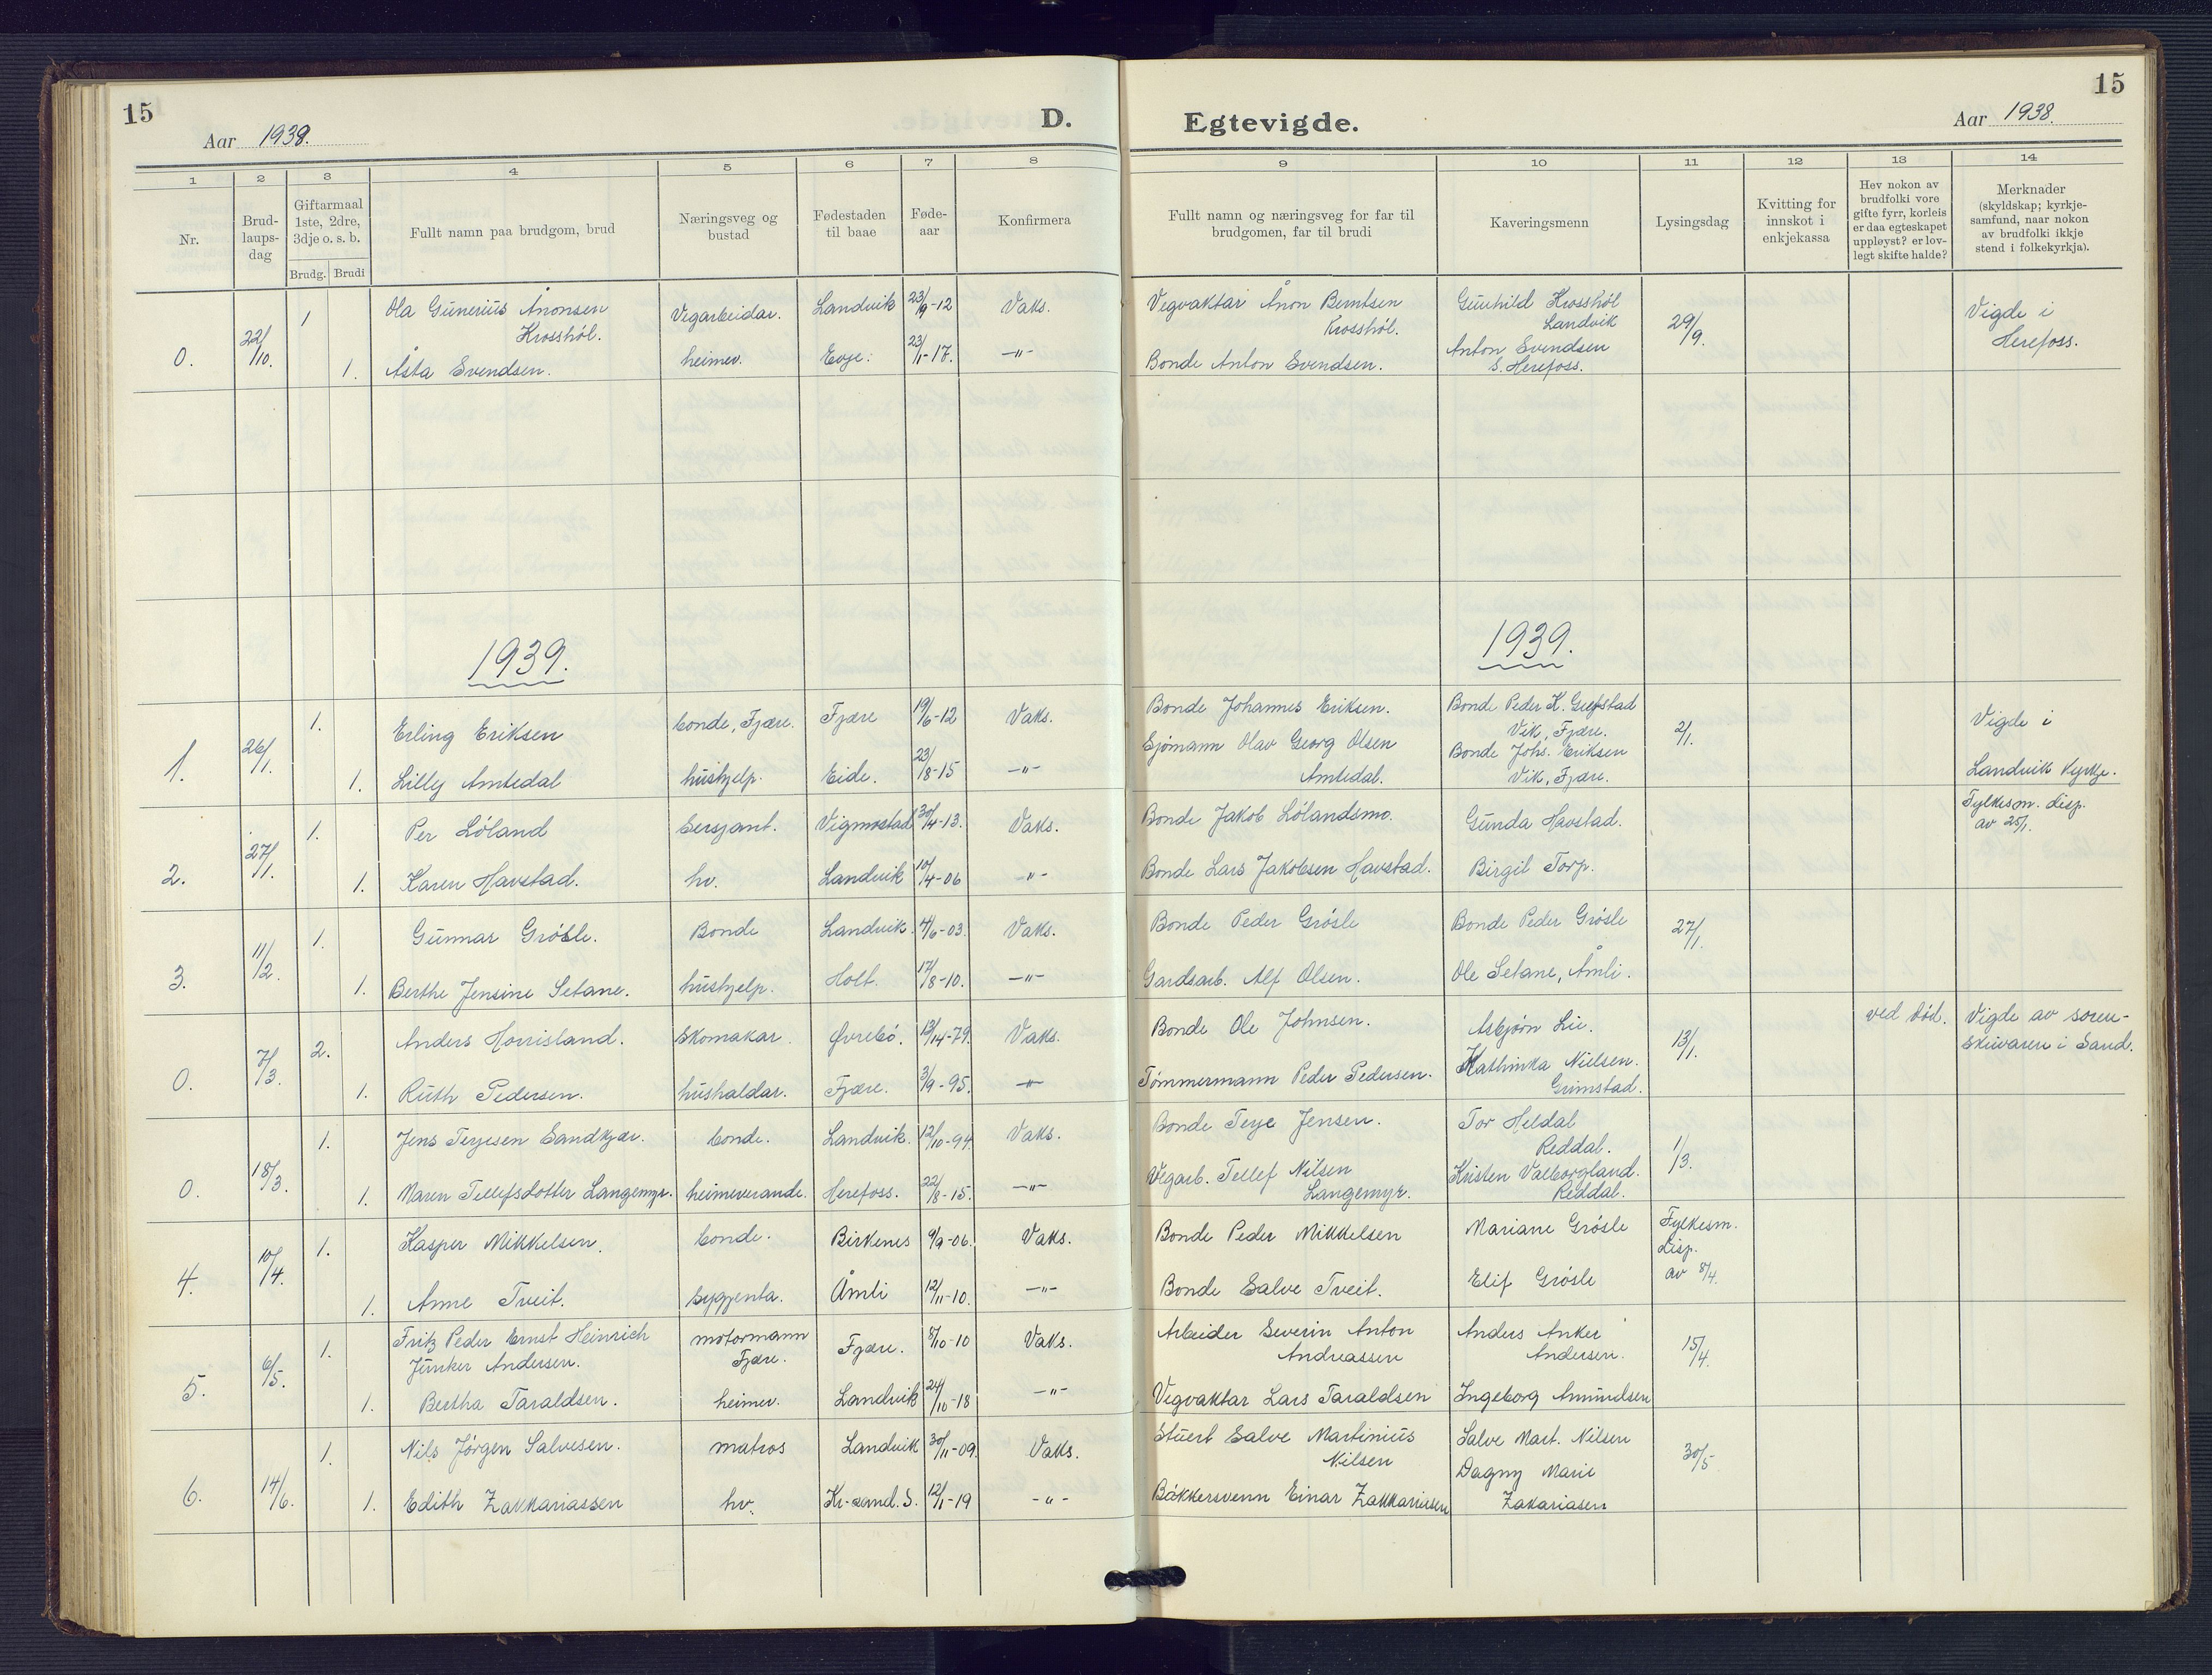 15
Aar 1938.
D.
Egtevigde.
15
Aar 1938.
1 2 3 4 5 6 7 8 9 10 11 12 13 14
Nr.
Brud-
laups-
dag
Giftarmaal
1ste, 2dre,
3dje o. s. b.
Brudg. Brudi
Fullt namn paa brudgom, brud
Næringsveg og
bustad
Fødestaden
til baae
Føde-
aar
Konfirmera
Fullt namn og næringsveg for far til
brudgomen, far til brudi
Kaveringsmenn
Lysingsdag
Kvitting for
innskot i
enkjekassa
Hev nokon av
brudfolki vore
gifte fyrr, korleis
er daa egteskapet
uppløyst? er lov-
legt skifte halde?
Merknader
(skyldskap; kyrkje-
samfund, naar nokon
av brudfolki ikkje
stend i folkekyrkja).
0. 22/10. 1 Ola Gunerius Ånonsen
Krosshól. Vegarbeidar. Landvik 23/9-12 Vaks. Vegvaktar Ånon Berntsen
Krosshól. Gunhild Krosshól
Landvik 29/9. Vigde i
Herefoss.
1. Åsta Svendsen. heimev. Evje. 23/1-17. -"- Bonde Anton Svendsen. Anton Svendsen
S. Herefoss.
1939. 1939.
1. 26/1. 1. Erling Eriksen bonde, Fjære. Fjære 19/6-12 Vaks. Bonde Johannes Eriksen. Bonde Peder K.
Vik, Fjære. 2/1. Vigde i
Landvik kyrkje.
1. Lilly Amtedal hushjelp. Eide. 23/8-15 -"- Sjómann Olav Georg Olsen
Amtedal. Bonde Johs. Eriksen
Vik, Fjære.
2. 27/1. 1. Per Lóland sersjant. Vigmostad 30/4-13. Vaks. Bonde Jakob Lólandsmo. Gunda Havstad. Fylkesm. disp.
av 25/1.
1. Karen Havstad. hv. Landvik 10/4-06 -"- Bonde Lars Jakobsen Havstad. Birgit Torp.
3. 11/2. 1. Gunnar Grósle. Bonde Landvik. 4/6-03. Vaks. Bonde Peder Grósle Bonde Peder Grósle 27/1.
1. Berthe Jensine Setane. hushjelp. Holt. 17/8-10. -"- Gardsarb. Alf Olsen. Ole Setane, Åmli.
0. 7/3. 2. Anders Horrisland. Skomakar. Øvrebó. 13/14-79. Vaks. Bonde Ole Johnsen. Asbjórn Lie. 13/1. ved død. Vigde av soren-
skrivaren i Sand.
1. Ruth Pedersen. hushaldar. Fjære. 3/9-95. -"- Tómmermann Peder Pedersen. Kathinka Nielsen.
Grimstad.
0. 18/3. 1. Jens Terjesen Sandkjær. bonde. Landvik. 12/10-94 Vaks. Bonde Terje Jensen. Tor Heldal
Reddal. 1/3.
1. Maren Tellefsdotter Langemyr. heimeverande. Herefoss. 22/8-15. -"- Vegarb. Tellef Nilsen
Langemyr. Kristen Valborgland.
Reddal.
4. 10/4. 1. Kasper Mikkelsen. bonde. Birkenes 9/9-06. Vaks. Bonde Peder Mikkelsen Mariane Grósle Fylkesm.
disp.
av 8/4.
1. Anne Tveit. sygjenta. Åmli 12/11-10. -"- Bonde Salve Tveit. Elif Grósle
5. 6/5. 1. Fritz Peder Ernst Heinrich
Junker Andersen. motormann
Fjære. Fjære. 8/10-10 Vaks. Arbeider Severin Anton
Andreassen Anders Anker
Andersen. 15/4.
1. Bertha Taraldsen. heimev. Landvik 24/10-18 -"- Vegvaktar Lars Taraldsen Ingeborg Amundsen
6. 14/6. 1. Nils Jórgen Salvesen. matros Landvik 30/11-09. Vaks. Stuert Salve Martinius
Nilsen Salve Mart. Nilsen 30/5
1. Edith Zakkariassen hv. Kr-sand. S. 12/1-19 -"- Bakkersvenn Einar Zakkariassen Dagny Marie
Zakariasen